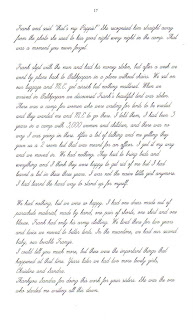 17
Frank and said "that's my Pappie". She recognized him straight away
from the photo she used to kiss good night every night in the camp. That
was a moment you never forget.
Frank slept with the men and had his money stolen, but after a week we
went by plane back to Balikpapan in a plane without chairs. We sat on
our luggage and M.E. got seasick but nothing mattered. When we
arrived in Balikpapan we discovered Frank's beautiful bed was stolen.
There was a camp for women who were waiting for beds to be vacated
and they wanted me and M.E. to go there. I told them, I had been 3
years in a camp with 3,000 women and children, and there was no
way I was going in there. After a lot of talking and me yelling they
gave us a room that was meant for an officer. I got it my way
and we moved in. We had nothing. They had to bring beds and
everything and I think they were happy to get rid of me but I had
learned a lot in those three years. I was not the same little girl anymore.
I had learned the hard way to stand up for myself.
We had nothing, but we were so happy. I had one dress made out of
parachute material, made by hand, one pair of shorts, one skirt and one
blouse. Frank had only his army clothing. We lived there for two years
and later we moved to better beds. In the meantime, we had our second
baby, our lovable Franzje.
I could tell you much more, but these were the important things that
happened at that time. Years later we had two more lovely girls,
Christine and Sandra.
Thankyou Sandra for doing this work for your sisters. She was the one
who started me writing all this down.